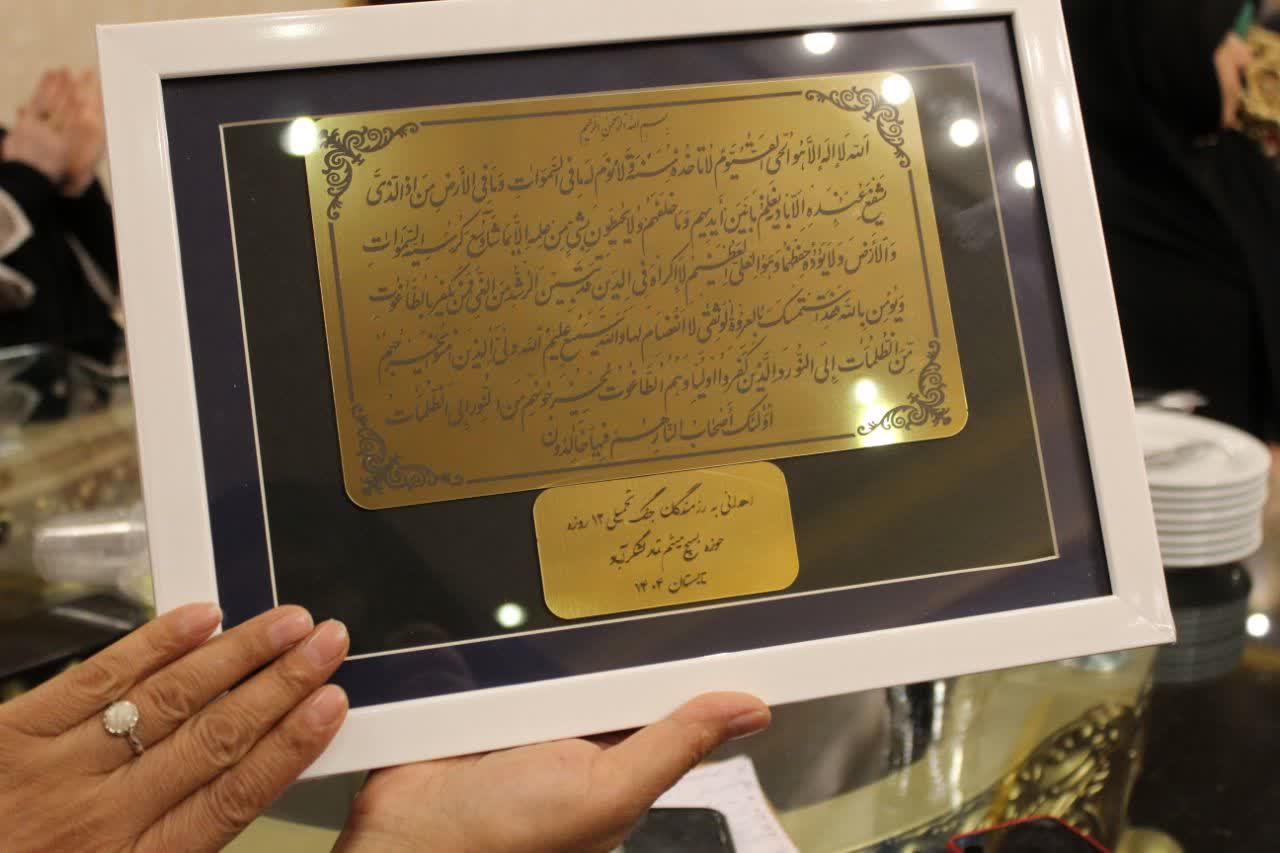 بسم الله الرحمن الرحیم
الله لا إله إلا هو الحی القیوم لا تأخذه سنة ولا نوم له ما فی السموات وما فی الأرض من ذا الذی
یشفع عنده إلا بإذنه یعلم ما بین أیدیهم وما خلفهم ولا یحیطون بشیء من علمه إلا بما شاء وسع کرسیه السموات
والأرض ولا یؤده حفظهما وهو العلی العظیم لا إکراه فی الدین قد تبین الرشد من الغی فمن یکفر بالطاغوت
ویؤمن بالله فقد استمسک بالعروة الوثقی لا انفصام لها والله سمیع علیم الله ولی الذین آمنوا یخرجهم
من الظلمات إلی النور والذین کفروا أولیاؤهم الطاغوت یخرجونهم من النور إلی الظلمات
أولئک أصحاب النار هم فیها خالدون
اهدائی به رزمندگان جنگ تحمیلی ۱۲ روزه
حوزه بسیج میثم تمار لشگرآباد
تابستان ۱۴۰۴